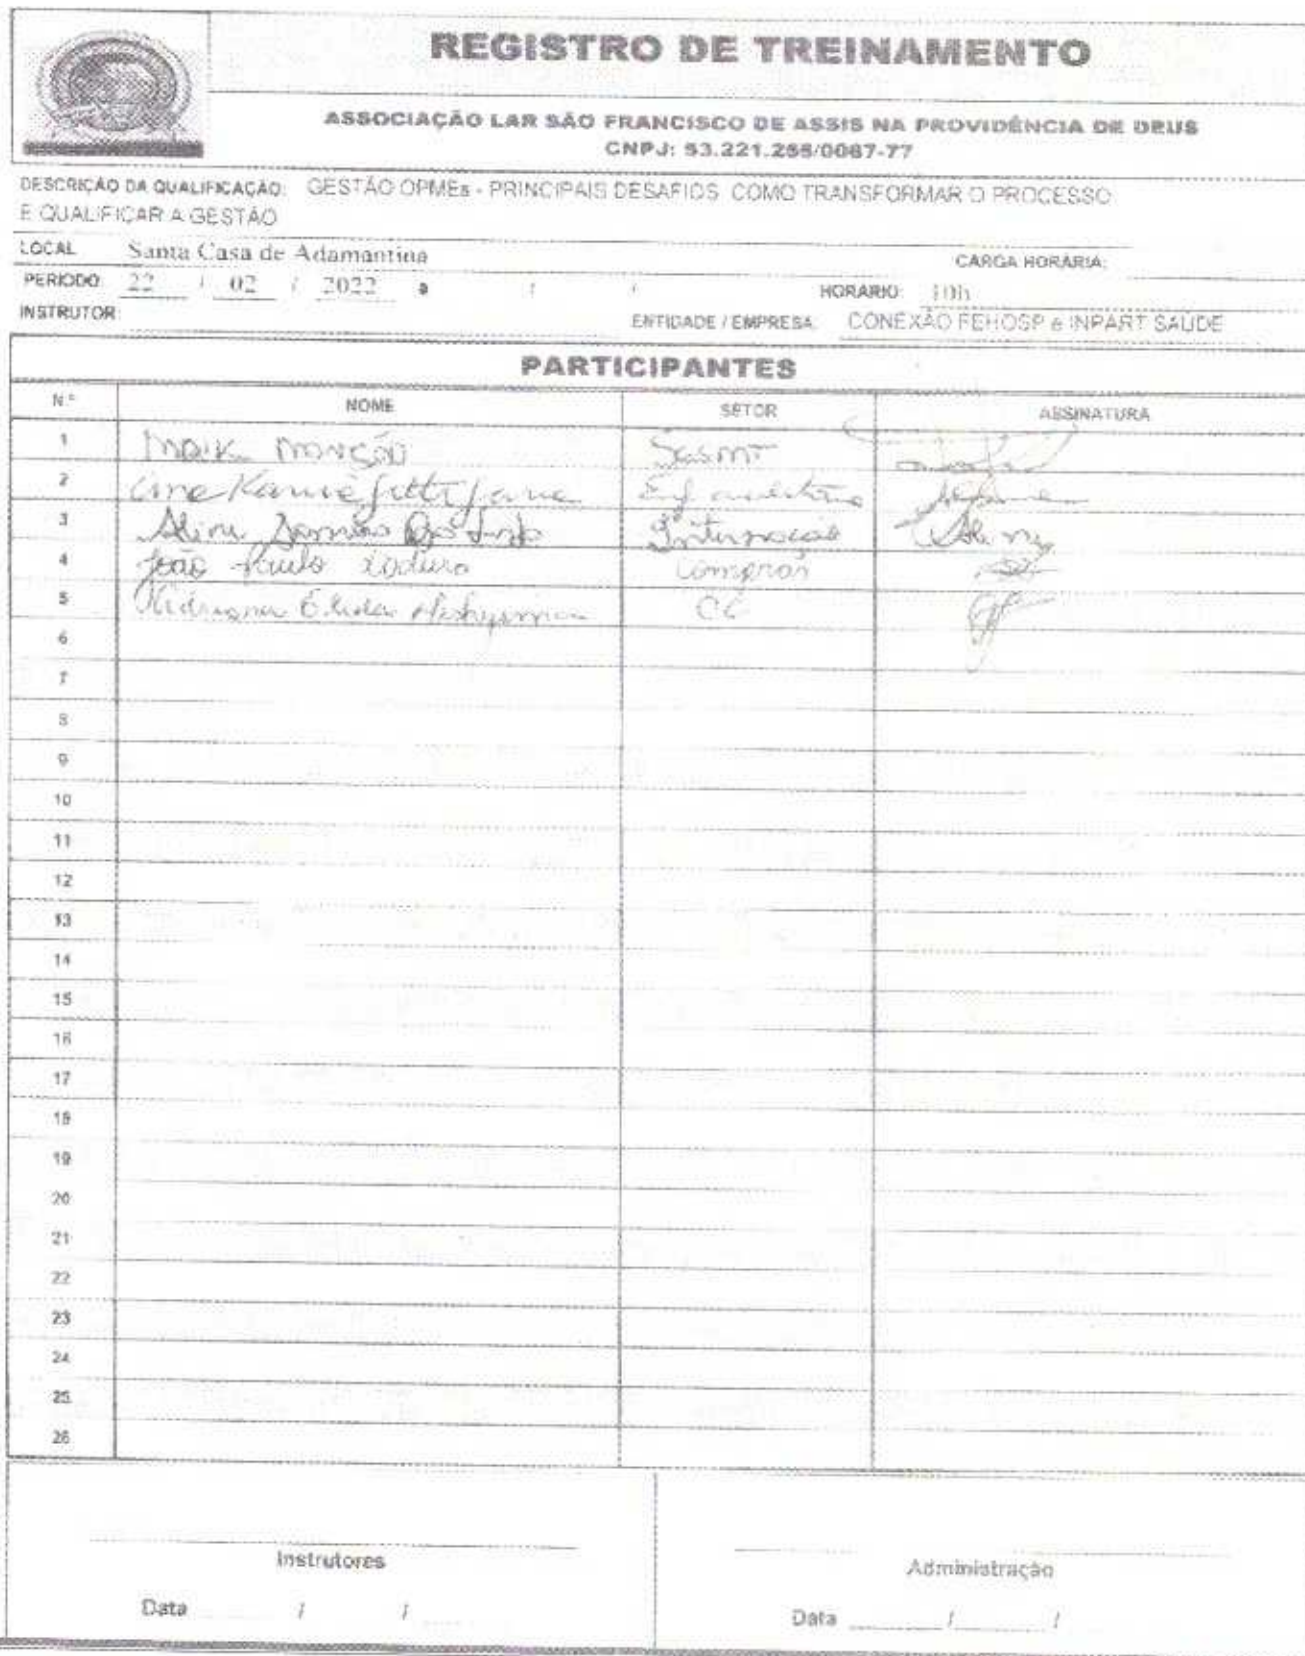 REGISTRO DE TREINAMENTO
ASSOCIAÇÃO LAR SÃO FRANCISCO DE ASSIS NA PROVIDÊNCIA DE DEUS
CNPJ: 53.221.255/0067-77
DESCRIÇÃO DA QUALIFICAÇÃO: GESTÃO OPMEs - PRINCIPAIS DESAFIOS COMO TRANSFORMAR O PROCESSO
E QUALIFICAR A GESTÃO
LOCAL Santa Casa de Adamantina CARGA HORÁRIA:
PERIODO: 22 / 02 / 2022 a / / HORARIO: 10h
INSTRUTOR: ENTIDADE / EMPRESA: CONEXÃO FEHOSP e INPART SAUDE
PARTICIPANTES
N.º NOME SETOR ASSINATURA
1 Maik Monção Sesmt
2 Enf auditoria
3 Aline Internação Aline
4 João Paulo Compras
5 Adriana Elida CC
6
7
8
9
10
11
12
13
14
15
16
17
18
19
20
21
22
23
24
25
26
Instrutores Administração
Data / / Data / /